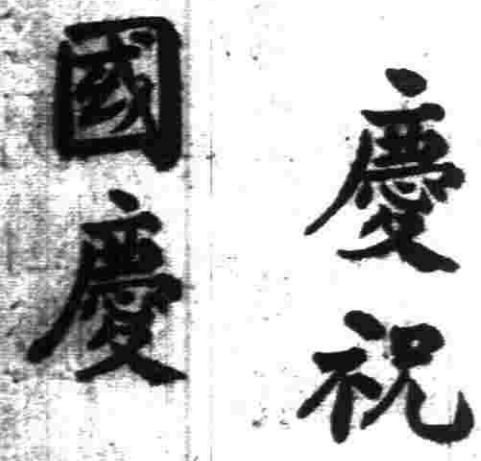 慶祝
國慶